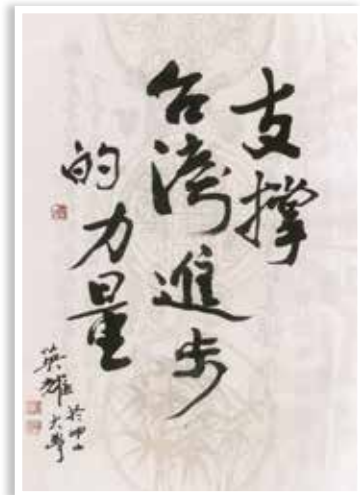 支撐
台灣進步
的力量
英雄
於中山
大學